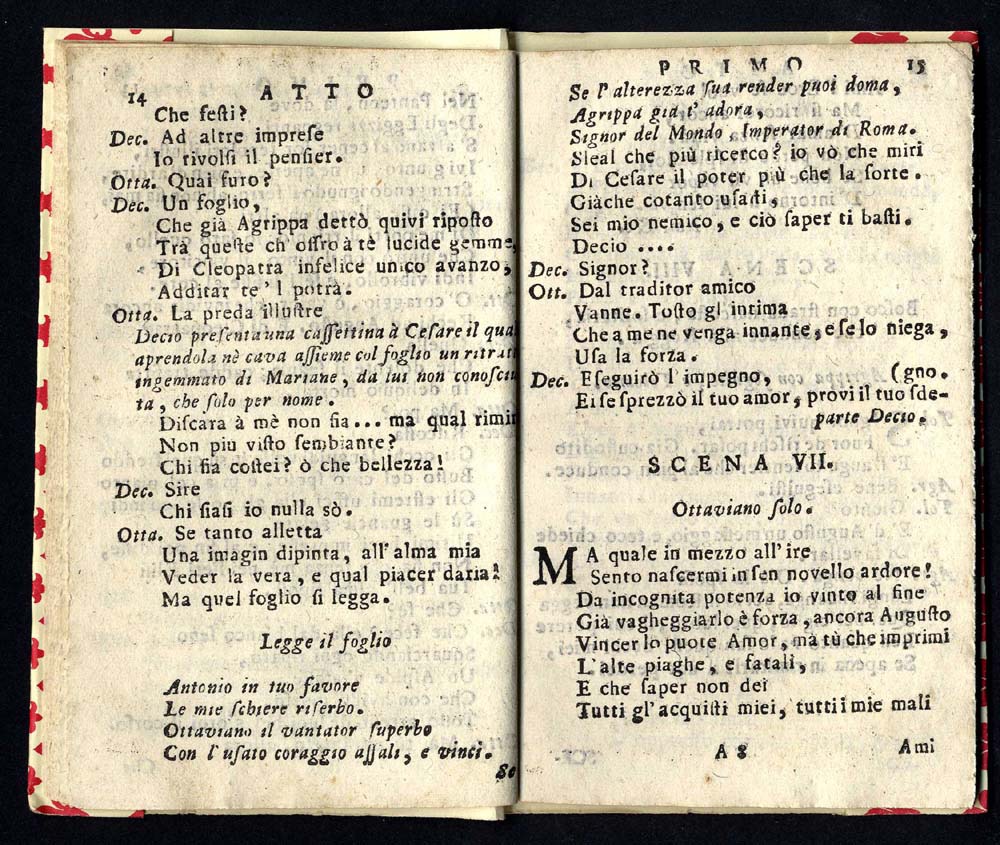 14 ATTO
Che festi?
Dec. Ad altre imprese
Io rivolsi il pensier.
Otta. Quai furo?
Dec. Un foglio,
Che già Agrippa dettò quivi riposto
Trà queste ch' offro à tè lucide gemme,
Di Cleopatra infelice unico avanzo,
Additar te 'l potrà.
Otta. La preda illustre
Decio presenta una cassettina à Cesare il qua
aprendola nè cava assieme col foglio un ritrat
ingemmato di Mariane, da lui non conosciu
ta, che solo per nome.
Discara à mè non sia... ma qual rimir
Non piu visto sembiante?
Chi sia costei? ò che bellezza!
Dec. Sire
Chi siasi io nulla sò.
Otta. Se tanto alletta
Una imagin dipinta, all'alma mia
Veder la vera, e qual piacer daria!
Ma quel foglio si legga.
Legge il foglio
Antonio in tuo favore
Le mie schiere riserbo.
Ottaviano il vantator superbo
Con l'usato coraggio assali, e vinci.
Se
PRIMO 15
Se l'alterezza sua render puoi doma,
Agrippa già t'adora,
Signor del Mondo, Imperator di Roma.
Sleal che più ricerco? io vò che miri
Di Cesare il poter più che la sorte.
Giàche cotanto usasti,
Sei mio nemico, e ciò saper ti basti.
Decio ....
Dec. Signor?
Ott. Dal traditor amico
Vanne. Tosto gl'intima
Che a me ne venga innante, e se lo niega,
Usa la forza.
Dec. Eseguirò l'impegno, (gno.
Ei se sprezzò il tuo amor, provi il tuo sde-
parte Decio.
SCENA VII.
Ottaviano solo.
MA quale in mezzo all'ire
Sento nascermi in sen novello ardore!
Da incognita potenza io vinto al fine
Già vagheggiarlo è forza, ancora Augusto
Vincer lo puote Amor, mà tù che imprimi
L'alte piaghe, e fatali,
E che saper non dei
Tutti gl'acquisti miei, tutti i mie mali
A 8 Ami